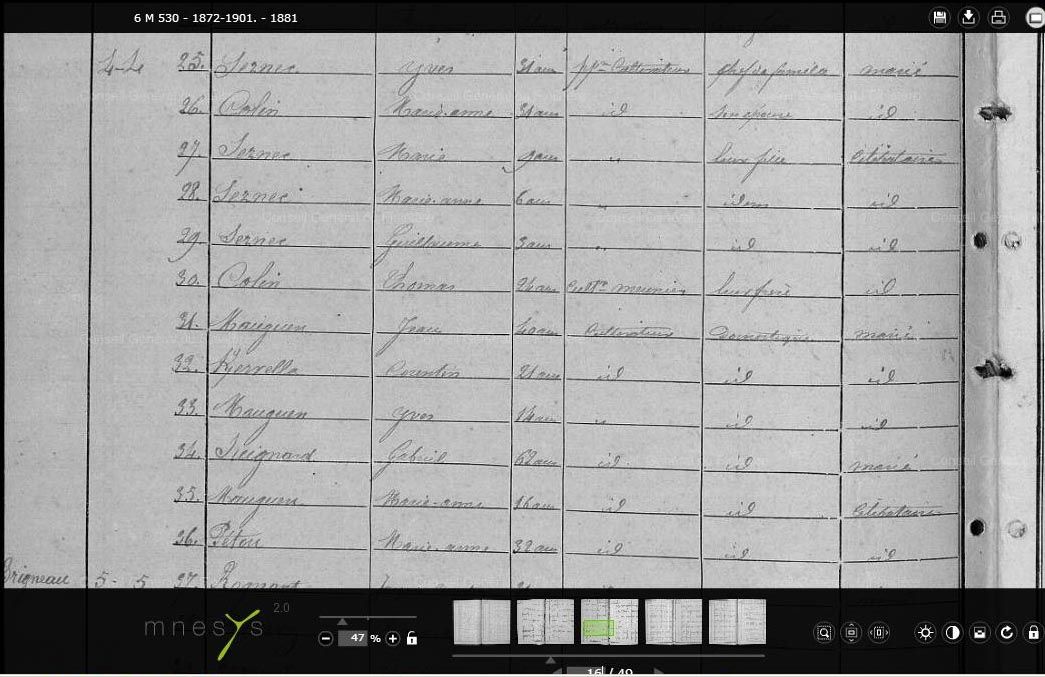 6 M 530 - 1872-1901. - 1881
4-4 25. Sernec Yves 31 ans ppre Cultivateur chef de famille marié
26. Colin Marie-anne 31 ans id son épouse id
27. Sernec Marie 9 ans " leur fille Célibataire
28. Sernec Marie-anne 6 ans " idem id
29. Sernec Guillaume 3 ans " id id
30. Colin Thomas 24 ans meunier leur frère id
31. Mauguen Jean Cultivateur Domestique marié
32. Kervella Corentin 21 ans id id id
33. Mauguen Yves 14 ans " id id
34. Gabriel 62 ans id id marié
35. Mauguen Marie-anne 16 ans id id Célibataire
36. Pétou Marie-anne 32 ans id id id
Brigneau 5- 5 37.
Conseil Général du Finistère
mnesys 2.0
47 %
16 / 49